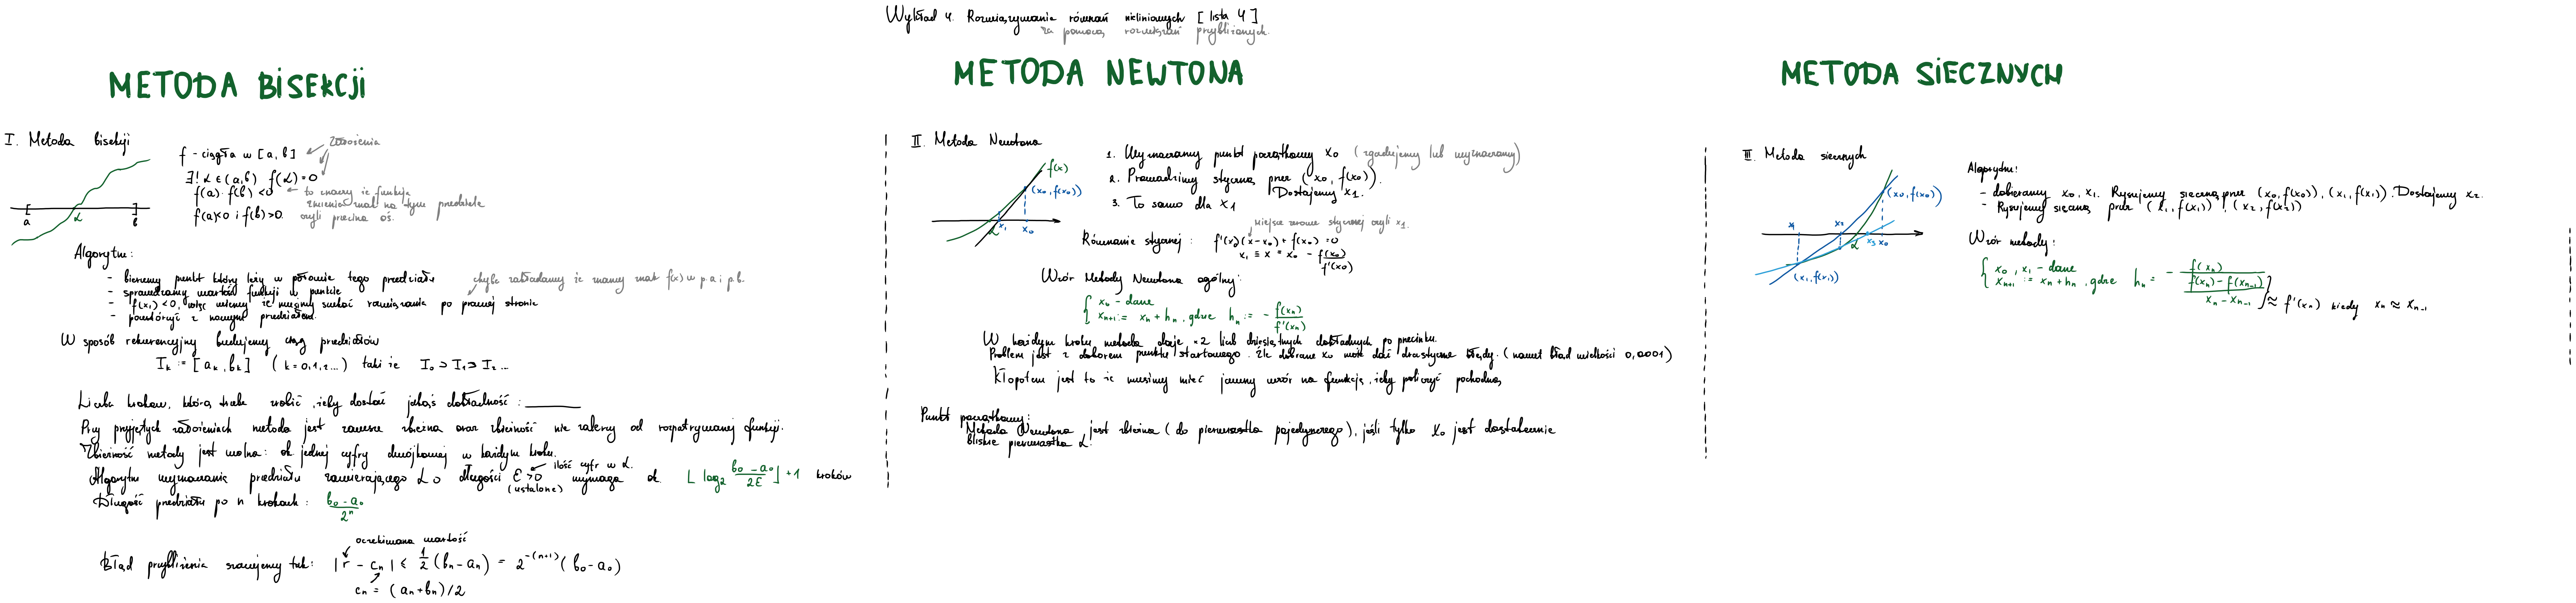 Wykład 4. Rozwiązywanie równań nieliniowych [lista 4]
za pomocą rozwiązań przybliżonych.
METODA BISEKCJI
I. Metoda bisekcji
f - ciągła w [a, b]
założenia
∃! α ∈ (a, b) f(α) = 0
f(a) · f(b) < 0
to znaczy że funkcja
zmienia znak na tym przedziale
czyli przecina oś.
f(a)<0 i f(b)>0.
a α b
Algorytm:
- bierzemy punkt który leży w połowie tego przedziału
chyba zakładamy że znamy znak f(x) w p.a i p.b.
- sprawdzamy wartość funkcji w punkcie
- f(x₁) < 0, więc wiemy że musimy szukać rozwiązania po prawej stronie
- powtórzyć z nowym przedziałem.
W sposób rekurencyjny budujemy ciąg przedziałów
Iₖ := [aₖ, bₖ] (k = 0,1,2...) takie I₀ ⊃ I₁ ⊃ I₂ ...
Liczba kroków, którą trzeba zrobić, żeby dostać jakąś dokładność :
Przy przyjętych założeniach metoda jest zawsze zbieżna oraz zbieżność nie zależy od rozpatrywanej funkcji.
Zbieżność metody jest wolna: ok jednej cyfry dwójkowej w każdym kroku.
ilość cyfr w α.
Algorytm wyznaczania przedziału zawierającego α o długości ε > 0 wymaga ok. ⌊ log₂ (b₀ - a₀)/2ε ⌋ + 1 kroków
(ustalone)
Długość przedziału po n krokach: (b₀ - a₀)/2ⁿ
oczekiwana wartość
Błąd przybliżenia szacujemy tak: | r - cₙ | ≤ 1/2 (bₙ - aₙ) = 2^-(n+1) (b₀ - a₀)
cₙ = (aₙ + bₙ)/2
METODA NEWTONA
II. Metoda Newtona
f(x)
(x₀, f(x₀))
α x₁ x₀
1. Wyznaczamy punkt początkowy x₀ (zgadujemy lub wyznaczamy)
2. Prowadzimy styczną przez (x₀, f(x₀)).
Dostajemy x₁.
3. To samo dla x₁
miejsce zerowe stycznej czyli x₁.
Równanie stycznej : f'(x₀)(x - x₀) + f(x₀) = 0
x₁ ≡ x = x₀ - f(x₀)/f'(x₀)
Wzór Metody Newtona ogólny:
{ x₀ - dane
xₙ₊₁ := xₙ + hₙ , gdzie hₙ := - f(xₙ)/f'(xₙ)
W każdym kroku metoda daje ×2 liczb dziesiętnych dokładnych po przecinku.
Problem jest z doborem punktu startowego. Źle dobrane x₀ może dać drastyczne błędy. (nawet błąd wielkości 0,0001)
Kłopotem jest to że musimy mieć jawny wzór na funkcję, żeby policzyć pochodną
Punkt początkowy:
Metoda Newtona jest zbieżna (do pierwiastka pojedynczego), jeśli tylko x₀ jest dostatecznie
bliskie pierwiastka α.
METODA SIECZNYCH
III. Metoda siecznych
(x₀, f(x₀))
x₁ x₂ α x₃ x₀
(x₁, f(x₁))
Algorytm:
- dobieramy x₀, x₁. Rysujemy sieczną przez (x₀, f(x₀)), (x₁, f(x₁)). Dostajemy x₂.
- Rysujemy sieczną przez (x₁, f(x₁)), (x₂, f(x₂))
Wzór metody:
{ x₀, x₁ - dane
xₙ₊₁ := xₙ + hₙ , gdzie hₙ = - f(xₙ) / ((f(xₙ) - f(xₙ₋₁)) / (xₙ - xₙ₋₁))
} ≈ f'(xₙ) kiedy xₙ ≈ xₙ₋₁